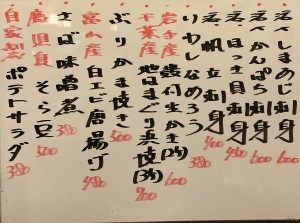 活〆しまあじ刺身 600
活〆かんぱち刺身 600
活ほっき貝刺身 450
活帆立刺身 400
いわしなめろう 400
岩手産 殻付生かき(1ヶ) 600
千葉産 地はまぐり浜焼(1ヶ) 200
ぶりかま焼き 500
富山産 白エビ唐揚げ 480
さば味噌煮 380
鹿児島産 そら豆 500
自家製 ポテトサラダ 380